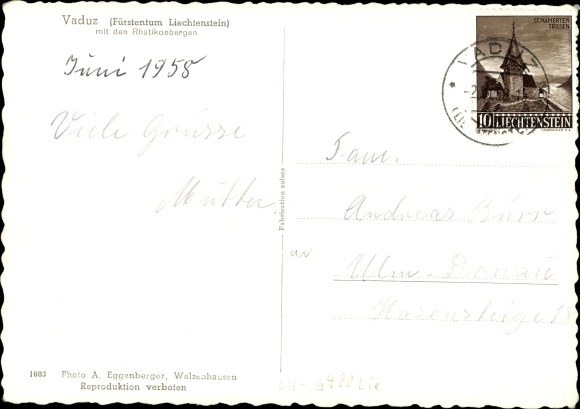 Vaduz (Fürstentum Liechtenstein)
mit den Rhätikonbergen
Juni 1958
Viele Grüsse
Mutter.
Fabrication suisse
ST. MAMERTEN
TRIESEN
VADUZ
10 LIECHTENSTEIN
Fam.
Andreas Burr
Ulm-Donau
Hasensteige 18
1003 Photo A. Eggenberger, Walzenhausen
Reproduktion verboten